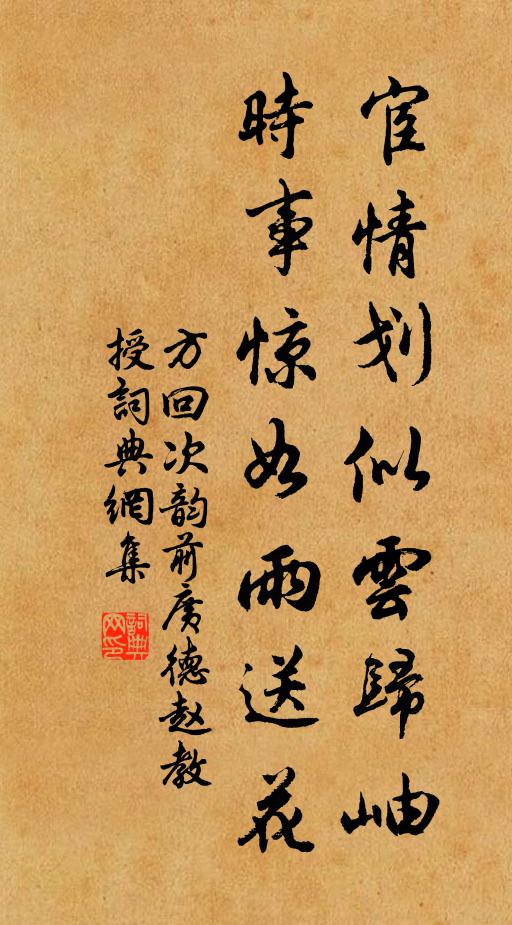 宦情划似雲歸岫
時事惊如雨送花
方回次韵前广德赵教
授詞典網集
詞典网印